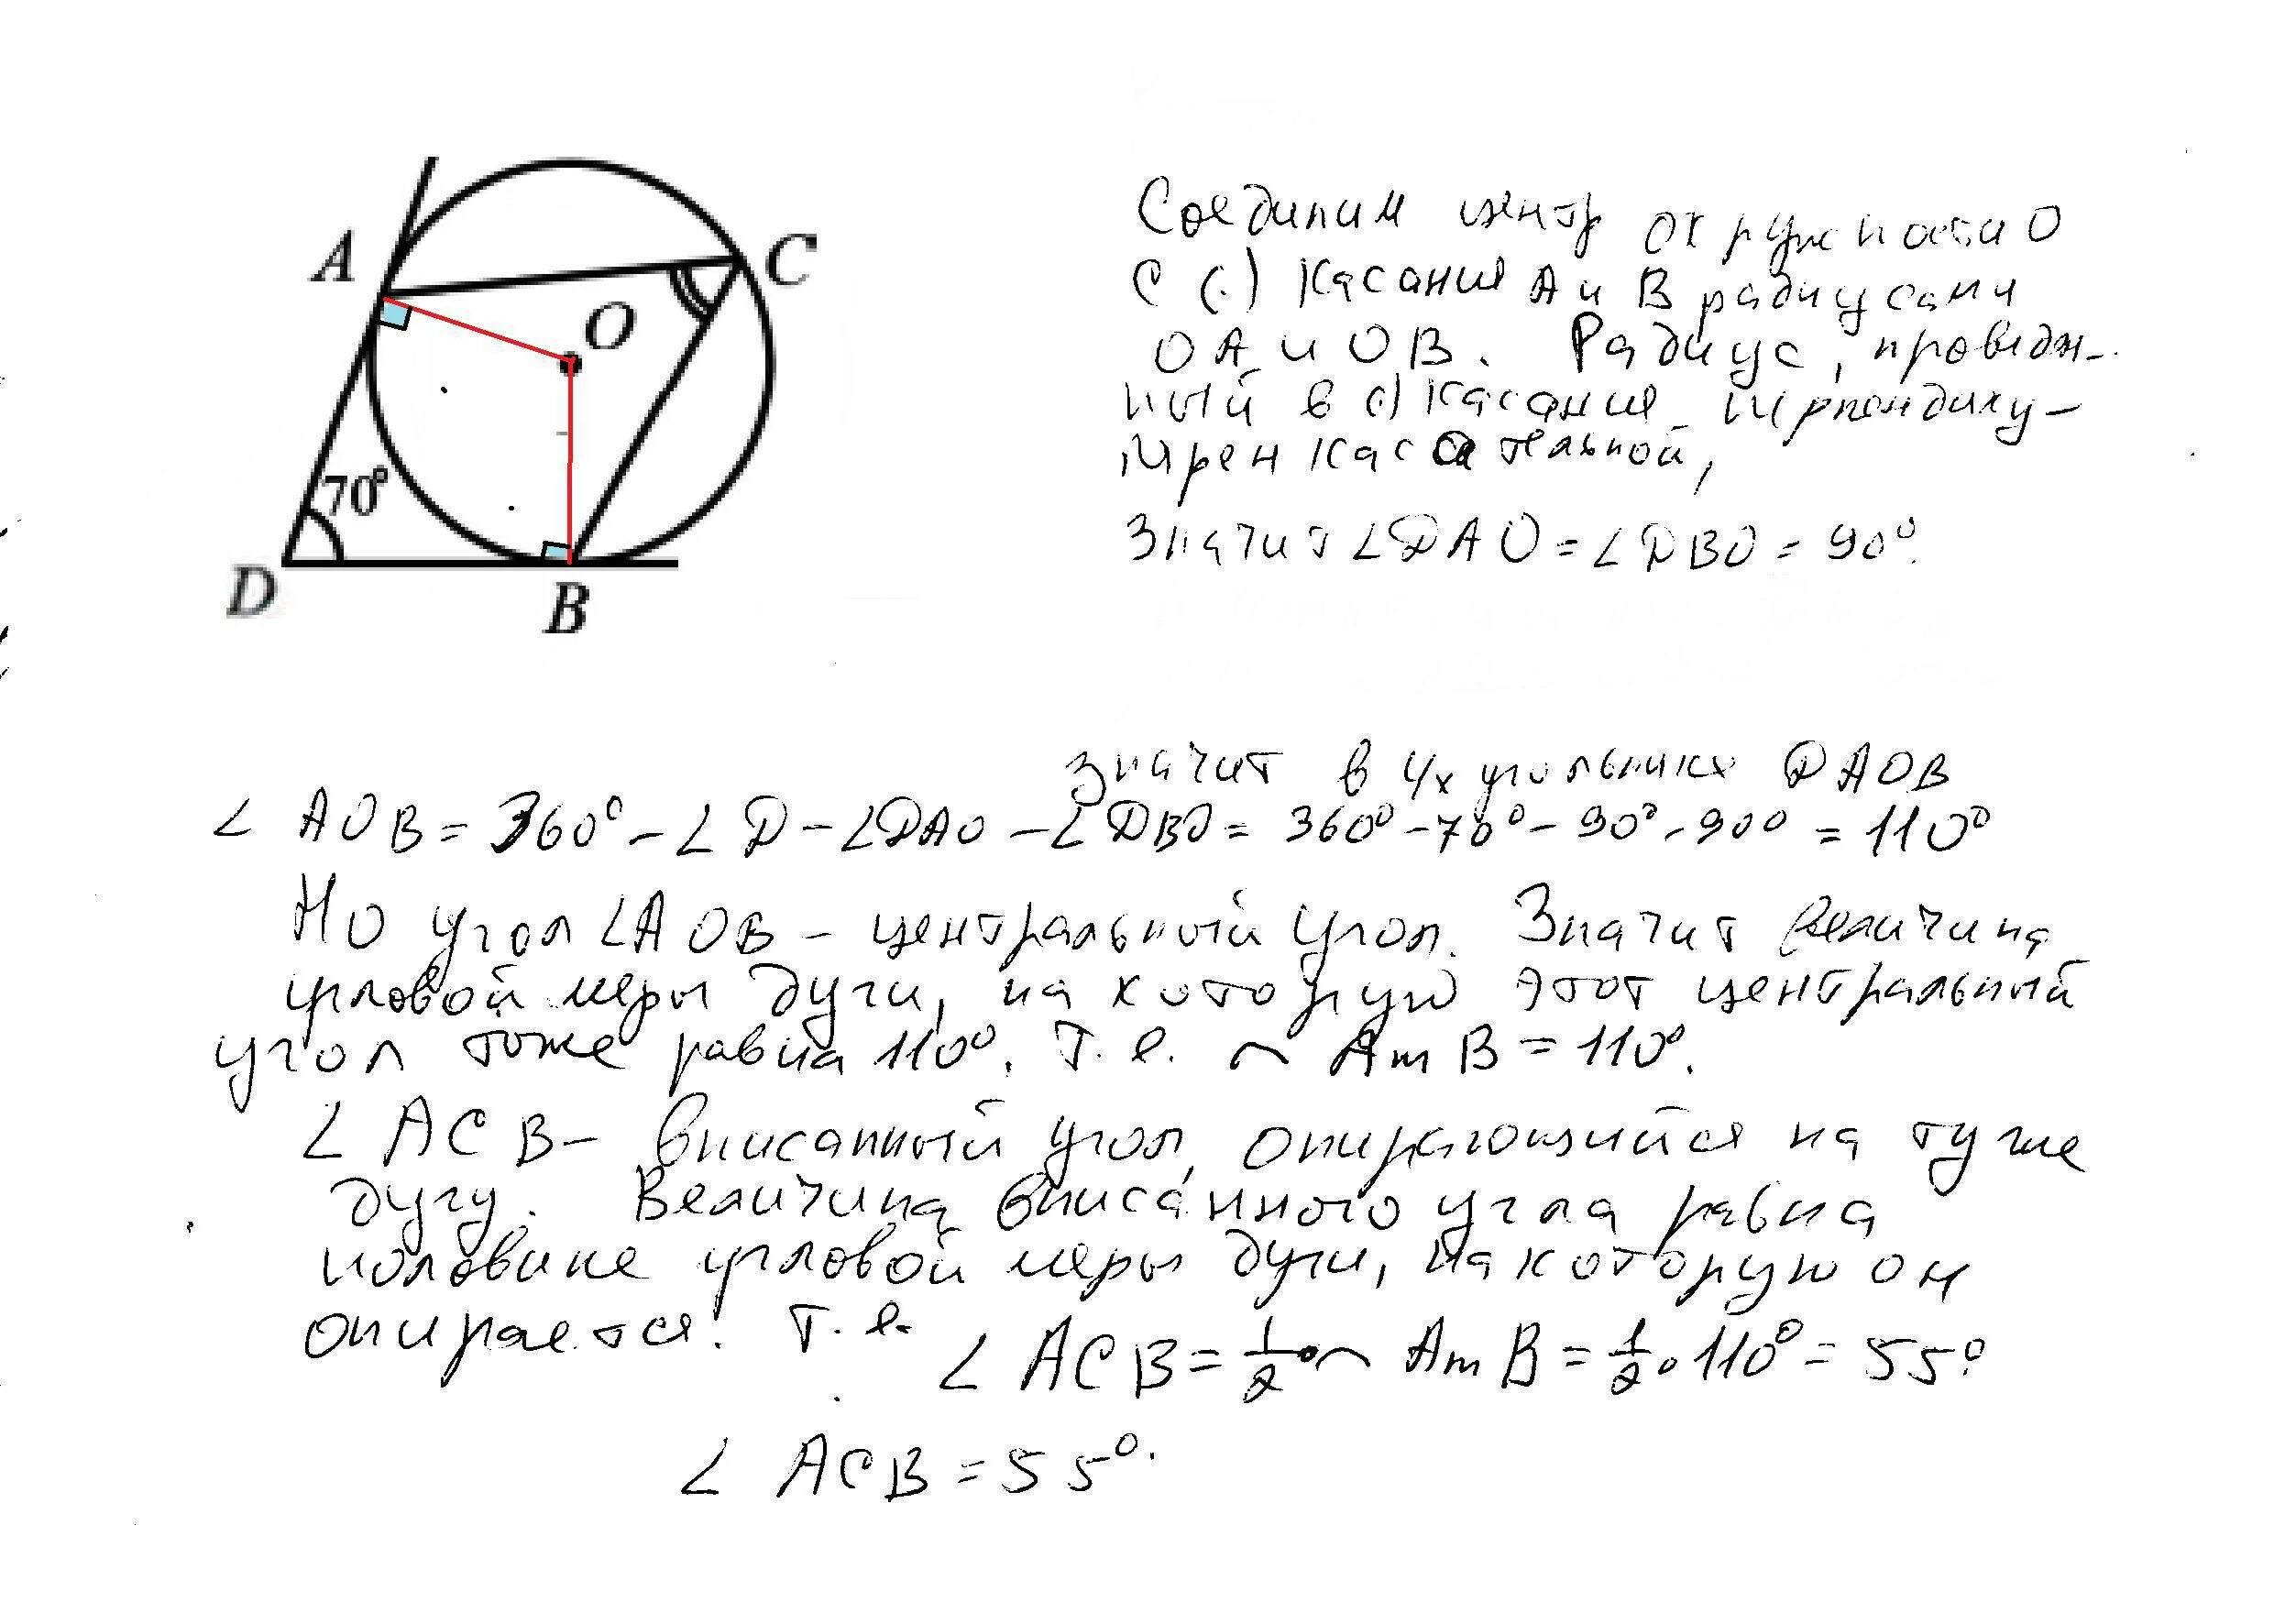 A
C
O
70°
D
B
Соединим центр окружности О
с (.) касания А и В радиусами
ОА и ОВ. Радиус, проведен-
ный в (.) касания перпендику-
лярен касательной,
Значит ∠DAO = ∠DBO = 90°.
значит в 4х угольнике DAOB
∠ AOB = 360° - ∠D - ∠DAO - ∠DBO = 360° - 70° - 90° - 90° = 110°
Но угол ∠AOB - центральный угол. Значит величина
угловой меры дуги, на которую этот центральный
угол тоже равна 110°. Т.е. ◠ AmB = 110°.
∠ ACB - вписанный угол, опирающийся на ту же
дугу. Величина вписанного угла равна
половине угловой меры дуги, на которую он
опирается. Т.е. ∠ ACB = 1/2 · ◠ AmB = 1/2 · 110° = 55°
∠ ACB = 55°.